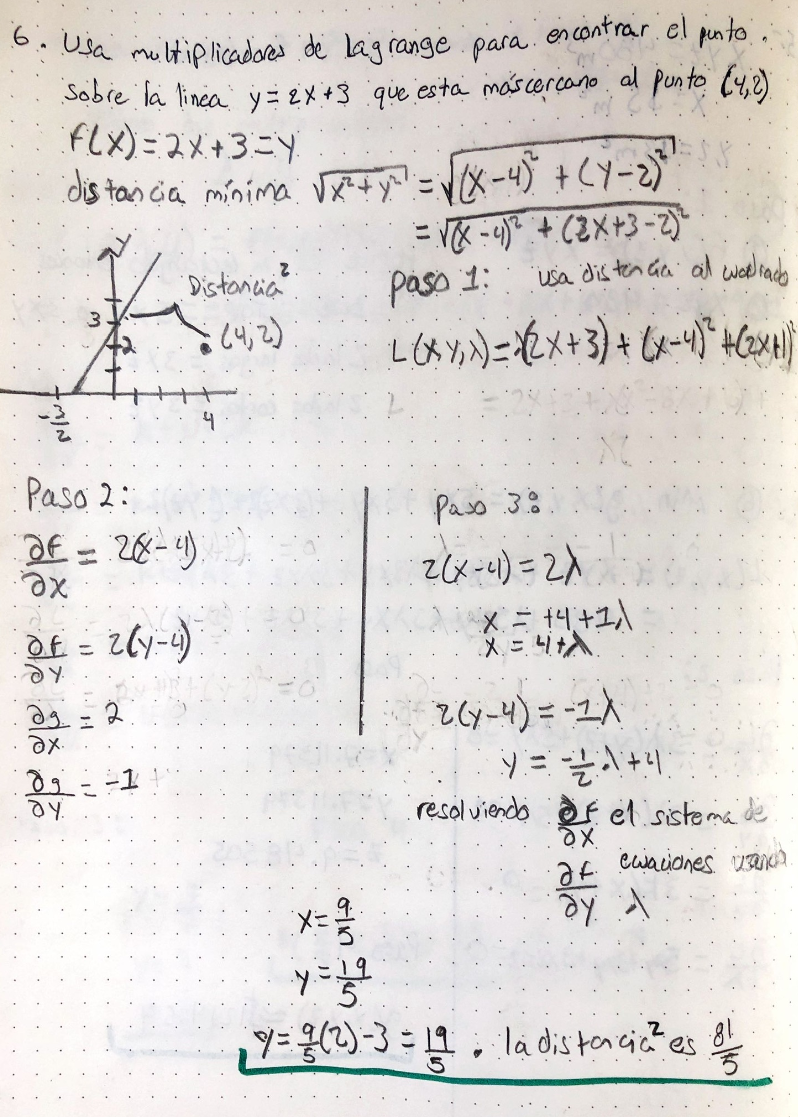 6. Usa multiplicadores de Lagrange para encontrar el punto.
sobre la linea y=2x+3 que esta mas cercano al punto (4,2)
f(x)=2x+3=y
distancia mínima √(x²+y²) = √((x-4)² + (y-2)²)
= √((x-4)² + (2x+3-2)²)
y
Distancia²
3
2
(4,2)
-3/2
4
paso 1: usa distancia al cuadrado
L(x y,λ)=λ(2x+3)+(x-4)²+(2x+1)²
Paso 2:
∂f/∂x = 2(x-4)
∂f/∂y = 2(y-4)
∂g/∂x = 2
∂g/∂y = -1
paso 3:
2(x-4)=2λ
x = +4+1λ
x = 4+λ
2(y-4)=-1λ
y = -1/2 λ+4
resolviendo ∂f/∂x el sistema de
∂f/∂y ecuaciones usando λ
x=9/5
y=19/5
y=9/5(2)-3=19/5 . la distancia² es 81/5